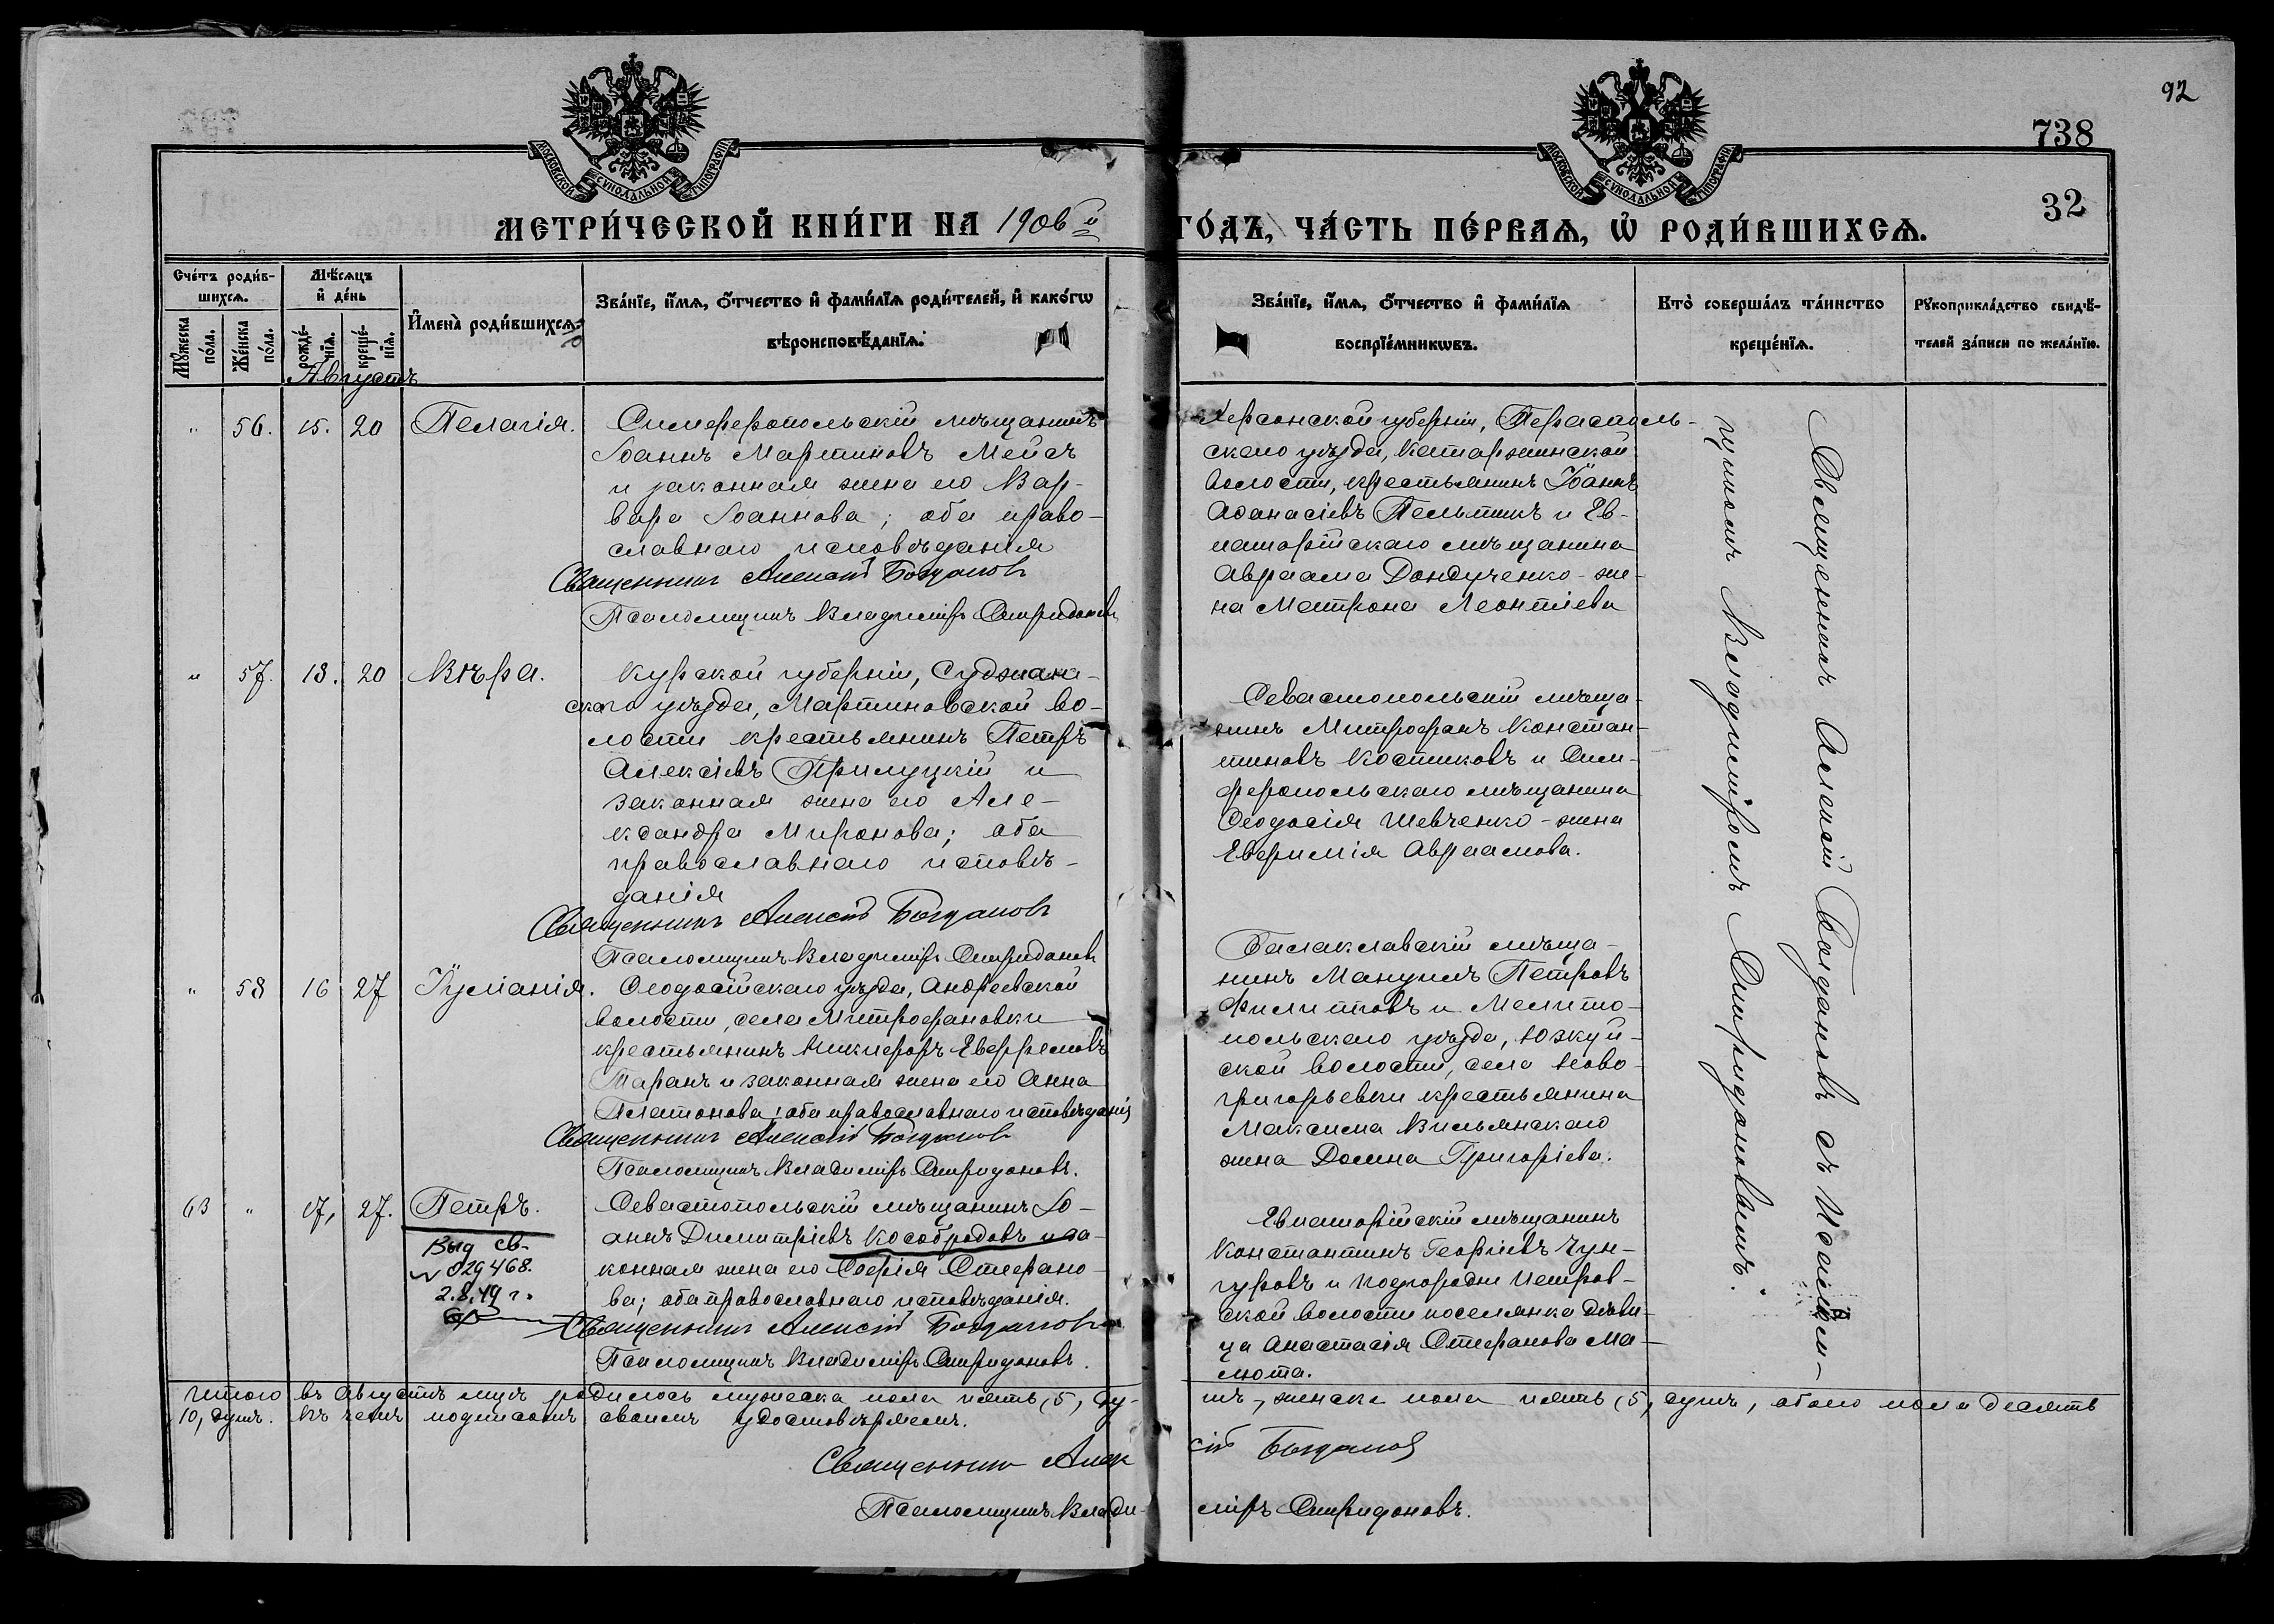 92
738
32
МОСКОВСКОЙ СѴНОДАЛЬНОЙ ТИПОГРАФІИ
МОСКОВСКОЙ СѴНОДАЛЬНОЙ ТИПОГРАФІИ
МЕТРИ́ЧЕСКОЙ КНИ́ГИ НА 1906й ГО́ДЪ, ЧА́СТЬ ПЕ́РВАЯ, Ѡ РОДИ́ВШИХСЯ.
Сче́тъ роди́в-
шихся.
Мѣ́сяцъ
и де́нь
Мꙋ́жеска по́ла.
Же́нска по́ла.
рожде́-
нїя.
креще́-
нїя.
И҆мена̀ роди́вшихся.
Зва́нїе, и҆́мя, ѻ҆́тчество и҆ фами́лїя роди́телей, и҆ како́гѡ
вѣроисповѣ́данїя.
Зва́нїе, и҆́мя, ѻ҆́тчество и҆ фами́лїя
воспрїе́мникѡвъ.
Кто̀ соверша́лъ та́инство
креще́нїя.
Рꙋкоприкла́дство свидѣ́-
телей за́писи по жела́нїю.
Августъ
" 56. 15. 20 Пелагія.
Симферопольскій мѣщанинъ
Іоаннъ Мартиновъ Мейсъ
и законная жена его Вар-
вара Іоаннова; оба право-
славнаго исповѣданія
Священникъ Алексій Богдановъ
Псаломщикъ Владиміръ Спиридоновъ
Херсонской губерніи, Тирасполь-
скаго уѣзда, Катаржинской
волости, крестьянинъ Іоаннъ
Аѳанасіевъ Пельтинъ и Ев-
паторійскаго мѣщанина
Авраама Дондученко - же-
на Матрона Леонтіева
" 57. 18. 20 Вѣра.
Курской губерніи, Суджан-
скаго уѣзда, Мартиновской во-
лости крестьянинъ Петръ
Алексіевъ Прилуцкій и
законная жена его Але-
ксандра Миронова; оба
православнаго исповѣ-
данія
Священникъ Алексій Богдановъ
Псаломщикъ Владиміръ Спиридоновъ
Севастопольскій мѣща-
нинъ Митрофанъ Констан-
тиновъ Костиковъ и Сим-
феропольскаго мѣщанина
Ѳеодосія Шевченко - жена
Евфимія Авраамова.
" 58 16 27 Іуліанія.
Ѳеодосійскаго уѣзда, Андреевской
волости, села Митрофановки
крестьянинъ Никифоръ Евфремовъ
Таранъ и законная жена его Анна
Платонова; оба православнаго исповѣданія
Священникъ Алексій Богдановъ
Псаломщикъ Владиміръ Спиридоновъ.
Балаклавскій мѣща-
нинъ Мануилъ Петровъ
Филиповъ и Мелито-
польскаго уѣзда, Юзкуй-
ской волости, села Ново-
григорьевки крестьянина
Максима Вильянскаго
жена Домна Григоріева.
63 " 17, 27. Петръ.
Выд св-
029468.
2.8.49 г.
Севастопольскій мѣщанинъ Іо-
аннъ Димитріевъ Кособродовъ и за-
конная жена его Софія Стефано-
ва; оба православнаго исповѣданія.
Священникъ Алексій Богдановъ
Псаломщикъ Владиміръ Спиридоновъ.
Евпаторійскій мѣщанинъ
Константинъ Георгіевъ Чун-
гуровъ и Подгородне Петров-
ской волости поселянка дѣви-
ца Анастасія Стефанова Ма-
люта.
Священникъ Алексій Богдановъ съ Псалом-
щикомъ Владиміромъ Спиридоновымъ.
Итого въ августѣ мцѣ родилось мужеска пола пять (5) ду-
шъ, женска пола пять (5) душъ, обоего пола десять
10, душъ. Въ чемъ подписомъ своимъ удостовѣряемъ.
Священникъ Алексій Богдановъ
Псаломщикъ Владиміръ Спиридоновъ.